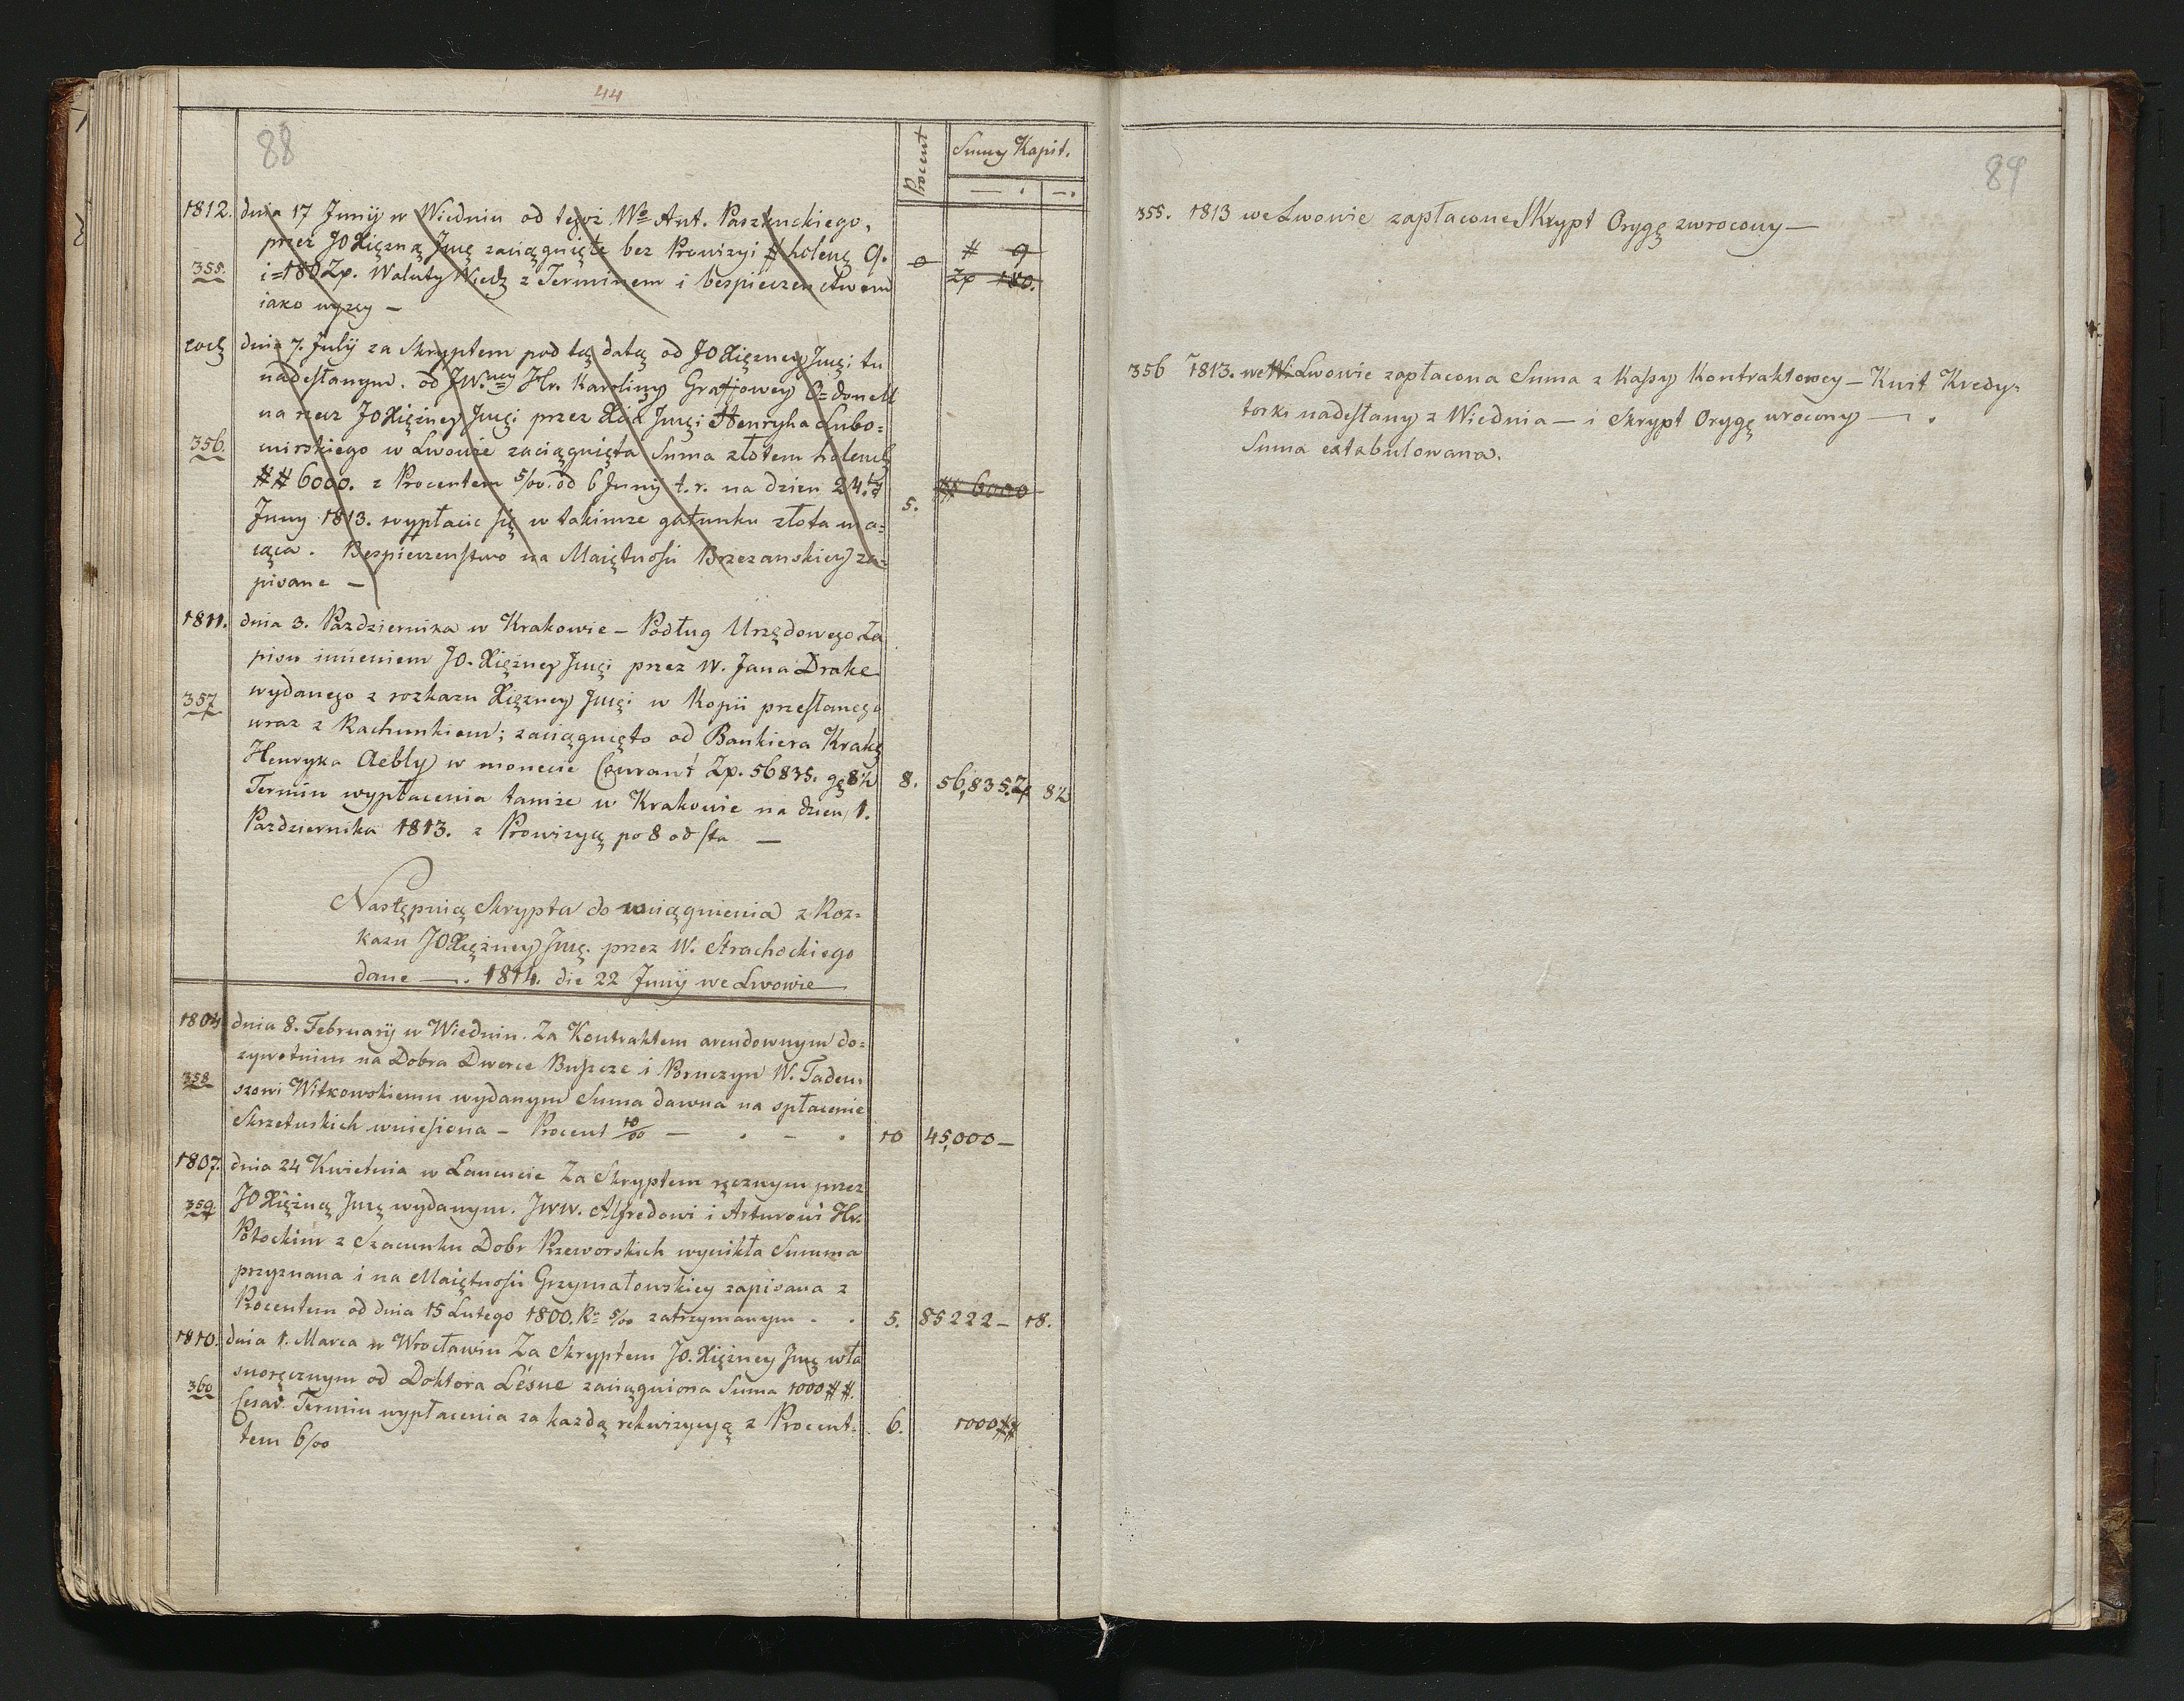 44
88
Procent
Sumy Kapit.
1812. dnia 17 Junij w Wiedniu od tegoż Wo Ant. Paszkuckiego,
przez JOXiężną Jmę zaciągnięte bez Prowizyi # holenę 9. 0 # 9
355. i=180 Zp. Waluty Wiedę z Terminem i bespieczenstwem Zp 180.
iako wyzey —
eodę dnia 7. Julij za Skryptem pod tą datą od JOXiężney Jmęi tu
nadesłanym. od JW.ney Hr. Karoliny Graffowey O=donell
na rzecz JOXiężney Jmęi przez Xcia Jmęi Henryka Lubo=
356. mirskiego w Lwowie zaciągnięta Suma złotem holendę
## 6000. z Procentem 5/00. od 6 Junij t. r. na dzien 24.ty 5. ## 6000
Juny 1813. wypłacic się w takimze gatunku złota ma=
iąca. Bespieczenstwo na Maiętnosci Brzezanskiey za=
pisane —
1811. dnia 3. Pazdziernika w Krakowie — Podług Urzędowego Za
pisu imieniem JO. Xiężney Jmęi przez W. Jana Drake
357 wydanego z rozkazu Xiężney Jmęi w Kopii przesłanego
wraz z Rachunkiem; zaciągnięto od Bankiera Krakę
Henryka Aebly w monecie Courant Zp. 56835. gę 8½ 8. 56,835.Zp 8½
Termin wypłacenia tamże w Krakowie na dzien 1.
Pazdziernika 1813. z Prowizyą po 8 od sta —
Następnią Skrypta do wciągnienia z Roz=
kazu JOXiężney Jmę. przez W. Strachockiego
dane —. 1814. die 22 Junij we Lwowie
1804 dnia 8. Februarij w Wiedniu. Za Kontraktem arendownym do=
zywotnim na Dobra Dworce Buszcze i Poruczyn W. Tadeu=
358 szowi Witkowskiemu wydanym Suma dawna na spłacenie
Skrzetuskich wniesiona — Procent 10/00 — . — . 10 45,000 —
1807. dnia 24 Kwietnia w Lancucie Za Skryptem ręcznym przez
359 JOXiężną Jmę wydanym. JWW. Alfredowi i Arturowi Hr.
Potockim z Szacunku Dobr Przeworskich wynikła Summa
przyznana i na Maiętnosci Grzymałowskiey zapisana z
Procentem od dnia 15 Lutego 1800. Ru 5/00 zatrzymanym . . 5. 85222 — 18.
1810. dnia 1. Marca w Wrocławiu Za Skryptem JO. Xiężney Jmę wła
360 snoręcznym od Doktora Lésne zaciągniona Suma 1000 ##.
Cesar. Termin wypłacenia za kazdą rekwizycyą z Procent= 6. 1000##
tem 6/00
89
355. 1813 we Lwowie zapłacone Skrypt Orygę zwrocony —
356 1813. we Lwowie zapłacona Suma z Kassy Kontraktowey — Kwit Kredy=
torki nadesłany z Wiednia — i Skrypt Orygę wrocony — .
Suma extabulowana.